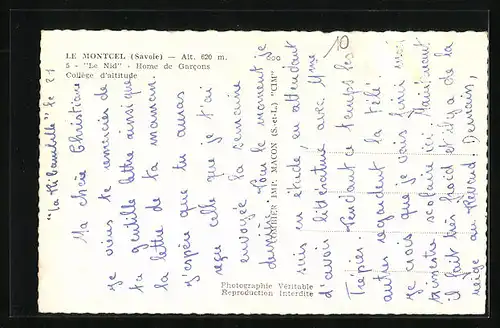 LE MONTCEL (Savoie) — Alt. 620 m.
5 - "Le Nid" - Home de Garçons
Collège d'altitude
"La Ribaudille" le 21
Ma chère Christiane
Je viens te remercier de
ta gentille lettre ainsi que
la lettre de ta maman
J'espère que tu auras
reçu celle que je t'ai
envoyée la semaine
dernière. Pour le moment je
suis en étude, en attendant
d'avoir littérature avec Mme
Trepier. Pendant ce temps les
autres regardent la télé.
Je crois que je vais finir mon
trimestre scolaire ici. Maintenant
il fait très froid et il y a de la
neige au Revard. Demain,
COMBIER IMP. MACON (S.-et-L.) "CIM"
Photographie Véritable
Reproduction Interdite
10